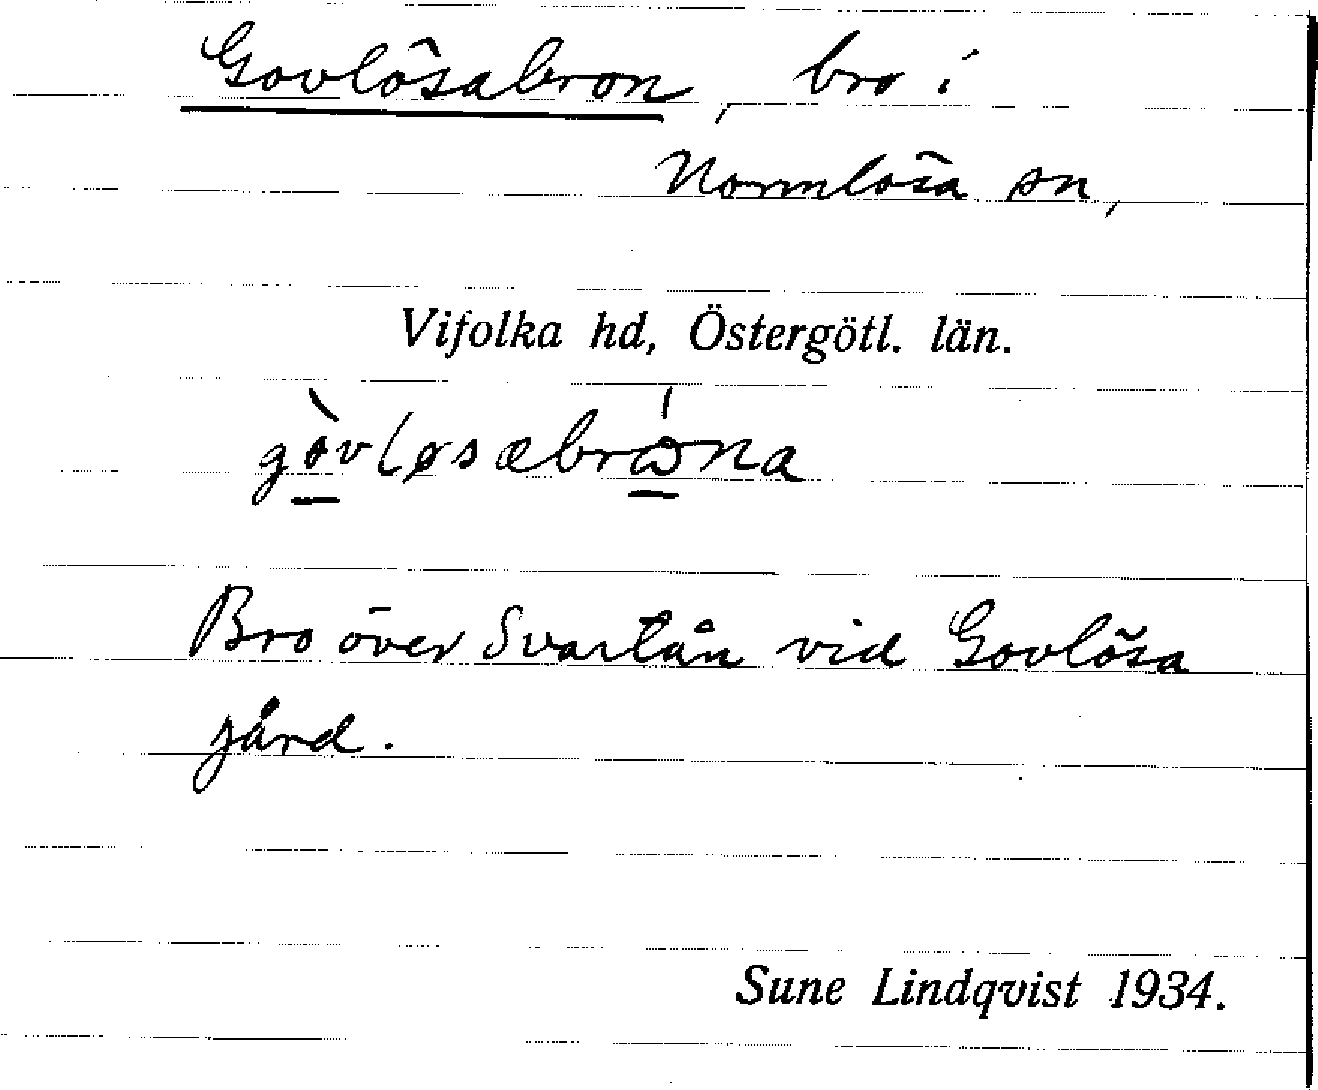 Govlösabron, bro i
Normlösa sn,
Vifolka hd, Östergötl. län.
gòvløsæbrώna
Bro över Svartån vid Govlösa
gård.
Sune Lindqvist 1934.